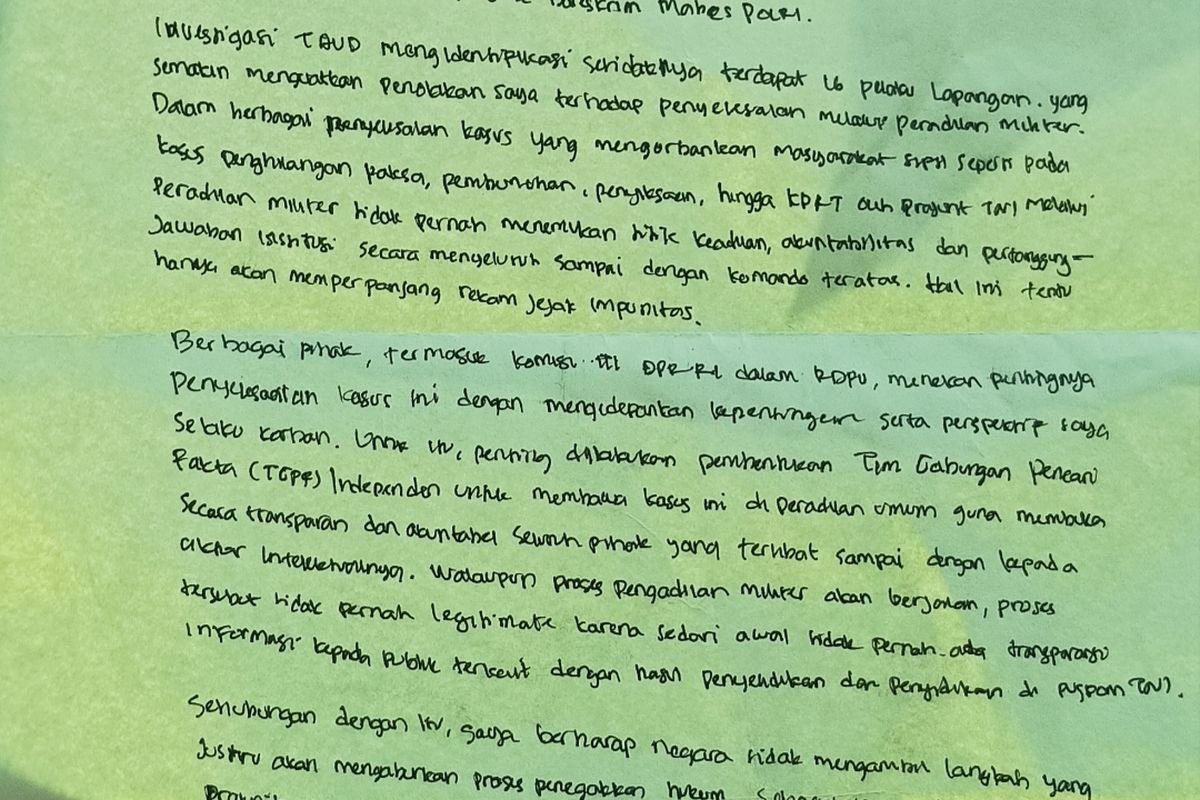 Mabes Polri.
Investigasi TAUD mengidentifikasi setidaknya terdapat 16 pelaku lapangan. yang
semakin menguatkan penolakan saya terhadap penyelesaian melalui peradilan militer.
Dalam berbagai penyelesaian kasus yang mengorbankan masyarakat sipil seperti pada
kasus penghilangan paksa, pembunuhan, penyiksaan, hingga KDRT oleh prajurit TNI melalui
Peradilan militer tidak pernah menemukan titik keadilan, akuntabilitas dan pertanggung-
Jawaban institusi secara menyeluruh sampai dengan komando teratas. Hal ini tentu
hanya akan memperpanjang rekam jejak impunitas.
Berbagai pihak, termasuk komisi III DPR RI dalam RDPU, menekan pentingnya
penyelesaian kasus ini dengan mengedepankan kepentingan serta perspektif saya
selaku korban. Untuk itu, penting dilakukan pembentukan Tim Gabungan Pencari
Fakta (TGPF) Independen untuk membawa kasus ini di peradilan umum guna membuka
secara transparan dan akuntabel seluruh pihak yang terlibat sampai dengan kepada
aktor intelektualnya. Walaupun proses pengadilan militer akan berjalan, proses
tersebut tidak pernah legitimate karena sedari awal tidak pernah ada transparansi
informasi kepada publik terkait dengan hasil penyelidikan dan penyidikan di puspom TNI.
Sehubungan dengan itu, saya berharap negara tidak mengambil langkah yang
justru akan mengaburkan proses penegakkan hukum